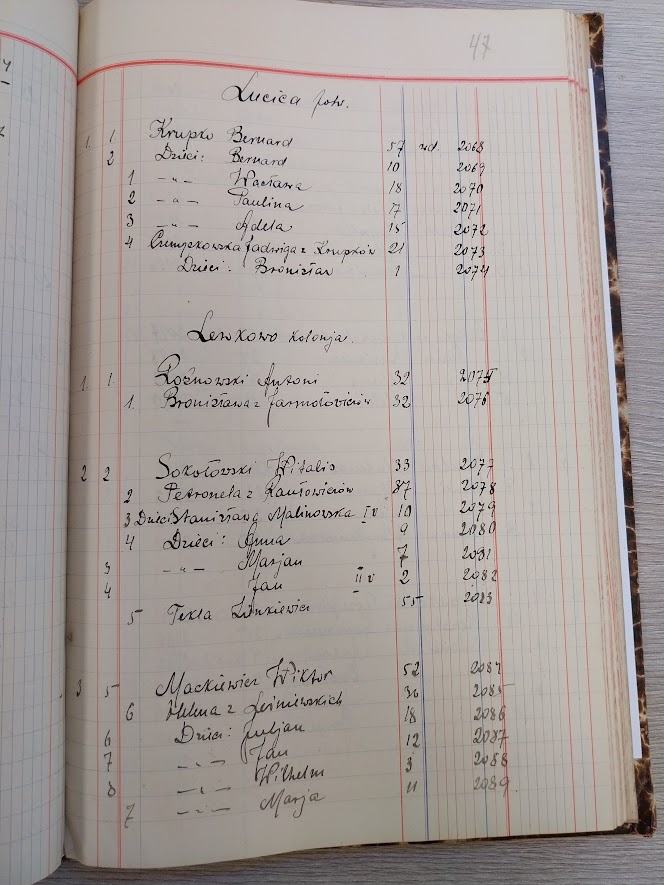 47
Lucica folw.
1. 1 Krupko Bernard 57 wd. 2068
2 Dzieci: Bernard 10 2069
1 -"- Wacława 18 2070
2 -"- Paulina 17 2071
3 -"- Adela 15 2072
4 Jadwiga z Krupków 21 2073
Dzieci: Bronisław 1 2074
Lewkowo kolonja.
1. 1. Rożnowski Antoni 32 2075
1. Bronisława z Jarmołowiczów 32 2076
2 2 Sokołowski Witalis 33 2077
2 Petronela z 37 2078
3 Dzieci Stanisława Malinowska I v 10 2079
4 Dzieci: Anna 9 2080
3 -"- Marjan 7 2081
4 Jan II v 2 2082
5 Tekla 55 2083
3 5 Mackiewicz Wiktor 52 2084
6 Helena z Leśniewskich 36 2085
6 Dzieci: Juljan 18 2086
7 -"- Jan 12 2087
8 -"- Wilhelm 3 2088
7 -"- Marja 11 2089.